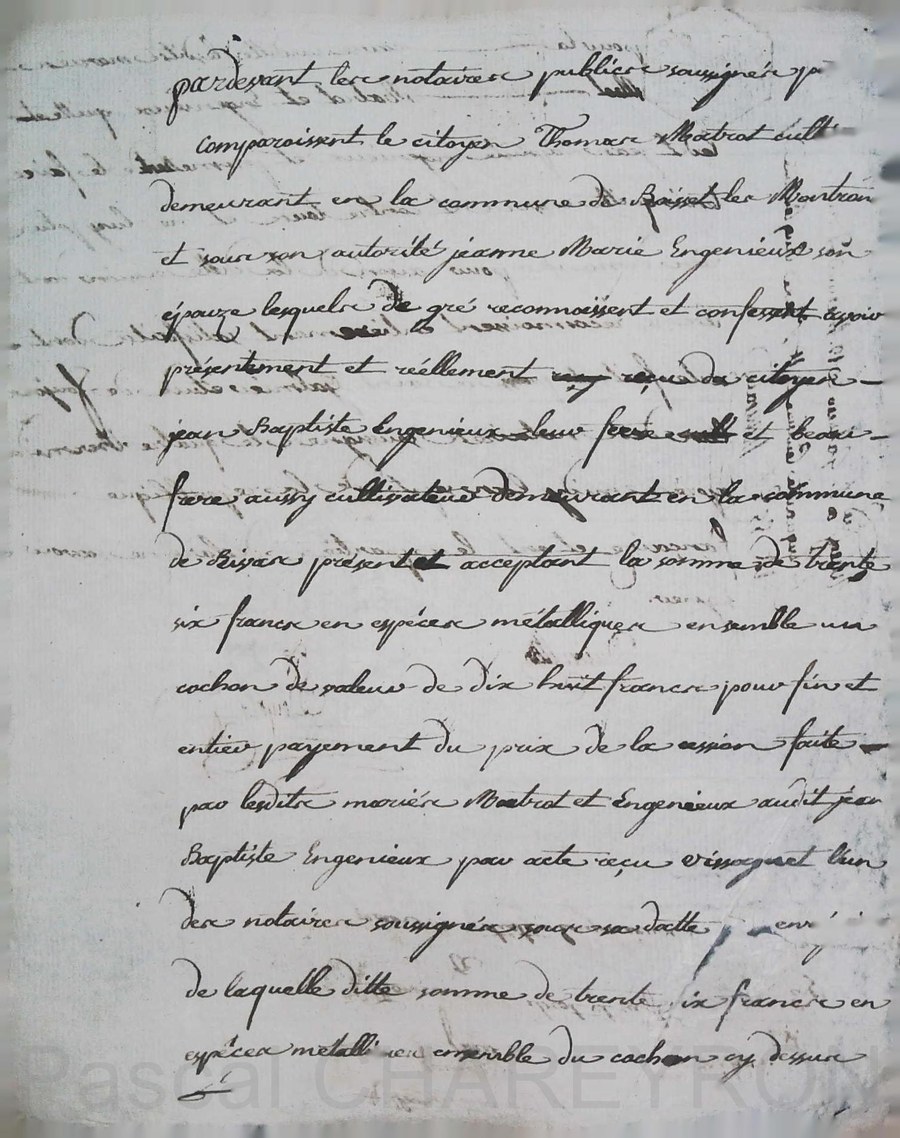 pardevant les notaires publics soussignés
comparoissent le citoyen Thomas Matrat cult
demeurant en la commune de Boisset les Montron
et sous son autorité jeanne Marie Engenieux son
épouze lesquels de gré reconnoissent et confessent avoir
présentement et réellement reçu du citoyen
jean Baptiste Engenieux leur frere et beau
frere aussy cultivateur demeurant en la commune
de Rivas présent et acceptant la somme de trente
six francs en espéces métalliques ensemble un
cochon de valeur de dix huit francs pour fin et
entier payement du prix de la cession faite
par lesdits mariés Matrat et Engenieux audit jean
Baptiste Engenieux par acte reçu vissaguet l'un
des notaires soussignés sous sa datte
de laquelle ditte somme de trente six francs en
espéces metalli ensemble du cochon cy dessus
Pascal CHAREYRON